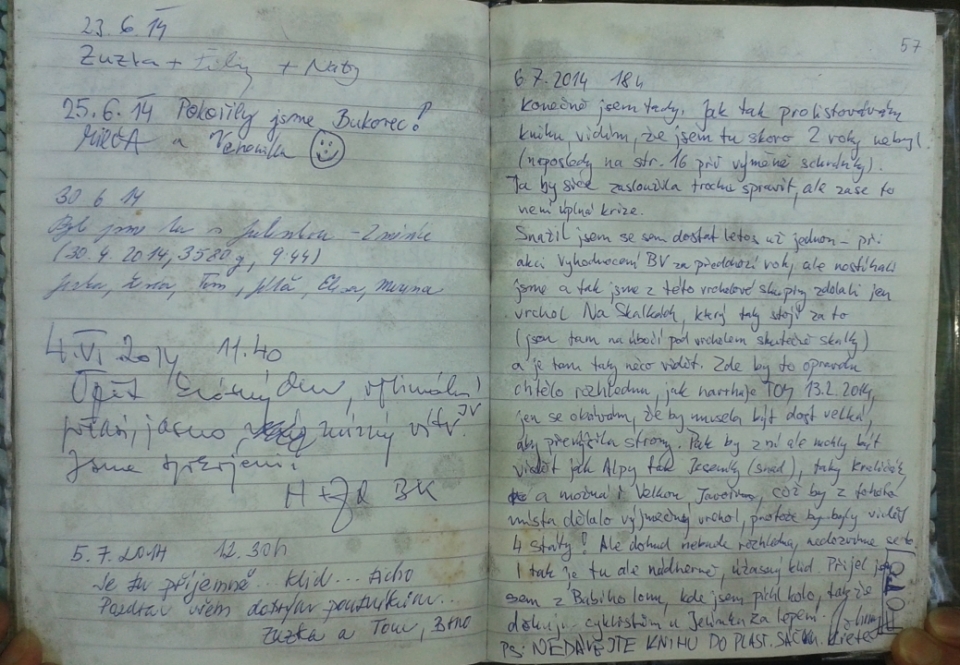 23. 6. 14
Zuzka + Filip + Naty
25. 6. 14 Pokořily jsme Bukovec!
MIRČA a Veronika
30 6 14
Byli jsme tu s
(30. 4. 2014, 3580 g, 9:44)
Tom,
4. VI 2014 11.40
Opět krásný den, optimální
počasí, jasno, mírný vítr. JV
Jsme spokojeni!
H + BK
5. 7. 2014 12.30h
Je tu příjemně... klid... ticho
Pozdrav všem dobrým poutníkům...
Zuzka a Tom, Brno
57
6 7. 2014 18h
Konečně jsem tady. Jak tak prolistovávám
knihu vidím, že jsem tu skoro 2 roky nebyl
(naposledy na str. 16 při výměně schránky).
Ta by sice zasloužila trochu spravit, ale zase to
není úplná krize.
Snažil jsem se sem dostat letos už jednou – při
akci vyhodnocení BV za předchozí rok, ale nestíhali
jsme a tak jsme z této vrcholové skupiny zdolali jen
vrchol Na Skalkách, který taky stojí za to
(jsou tam na úbočí pod vrcholem skutečné skalky)
a je tam taky něco vidět. Zde by to opravdu
chtělo rozhlednu, jak navrhuje TOM 13.2.2014,
jen se obávám, že by musela být dost velká,
aby převýšila stromy. Pak by z ní ale mohly být
vidět jak Alpy tak Jeseníky (snad), taky Králičák
a možná i Velkou Javořinu, což by z tohoto
místa dělalo výjimečný vrchol, protože by byly vidět
4 státy! Ale dokud nebude rozhledna, nedozvíme se to.
I tak je tu ale nádherně, úžasný klid. Přijel jsem
sem z Babího lomu, kde jsem píchl kolo, takže
děkuji cyklistům u Jelínka za lepení.
PS: NEDÁVEJTE KNIHU DO PLAST. SÁČKU.